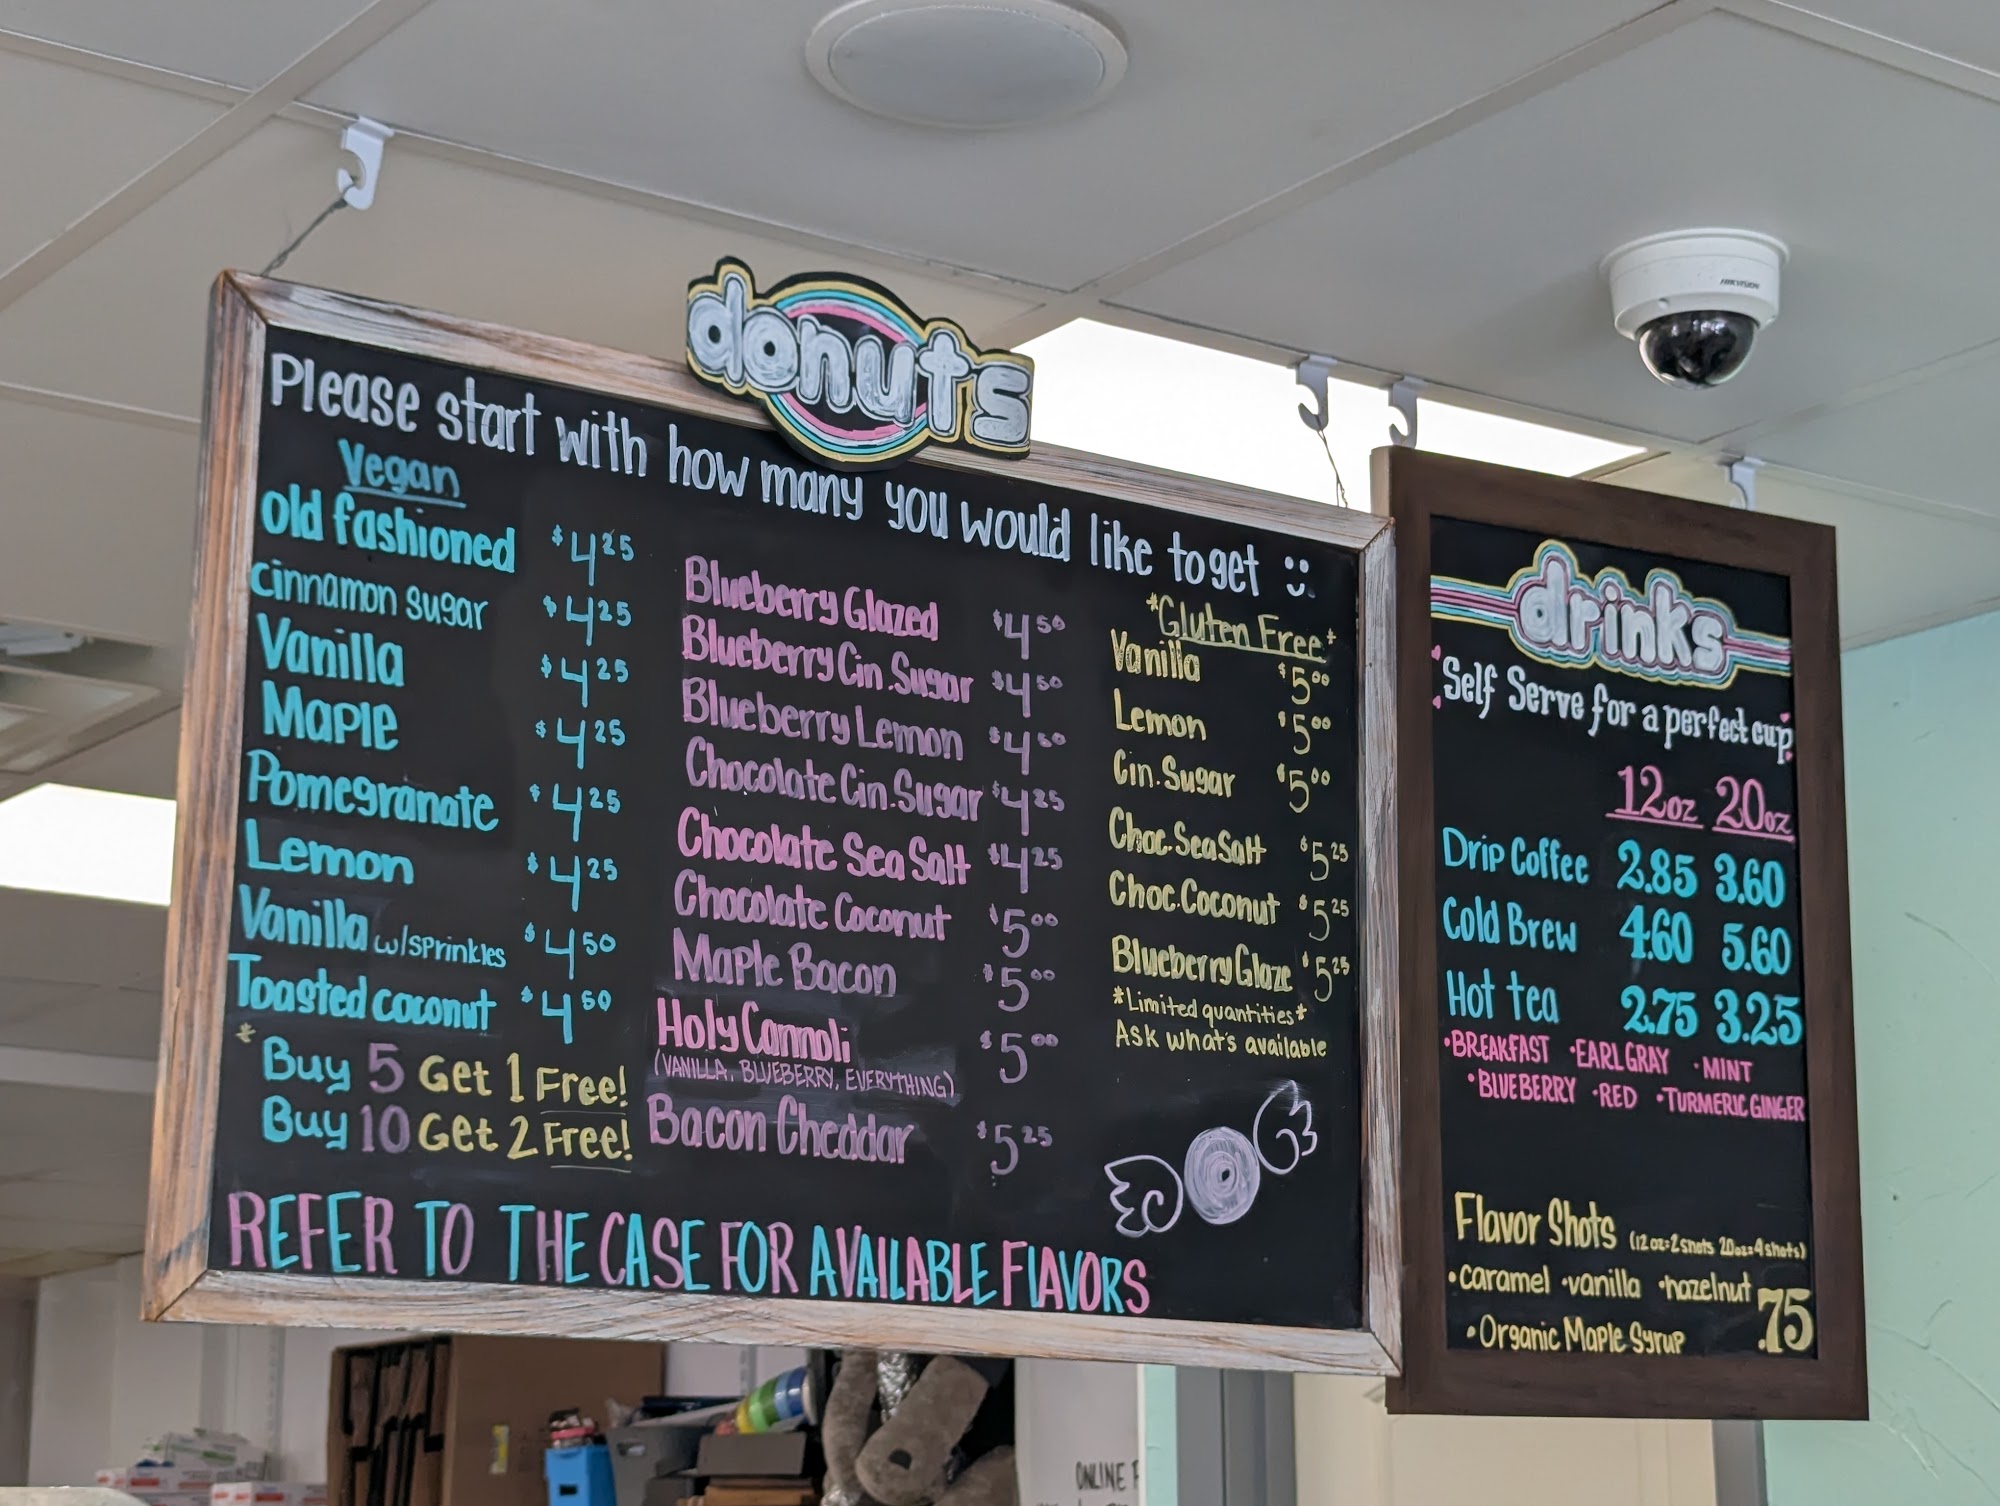 donuts
Please start with how many you would like to get
Vegan
old fashioned $4.25
cinnamon sugar $4.25
Vanilla $4.25
Maple $4.25
Pomegranate $4.25
Lemon $4.25
Vanilla w/sprinkles $4.50
Toasted coconut $4.50
*Buy 5 Get 1 Free!
Buy 10 Get 2 Free!
Blueberry Glazed $4.50
Blueberry Cin. Sugar $4.50
Blueberry Lemon $4.50
Chocolate Cin. Sugar $4.25
Chocolate Sea Salt $4.25
Chocolate Coconut $5.00
Maple Bacon $5.00
Holy Cannoli $5.00
(VANILLA, BLUEBERRY, EVERYTHING)
Bacon Cheddar $5.25
*Gluten Free*
Vanilla $5.00
Lemon $5.00
Cin. Sugar $5.00
Choc. Sea Salt $5.25
Choc. Coconut $5.25
Blueberry Glaze $5.25
*Limited quantities*
Ask what's available
REFER TO THE CASE FOR AVAILABLE FLAVORS
drinks
Self Serve for a perfect cup
12oz 20oz
Drip Coffee 2.85 3.60
Cold Brew 4.60 5.60
Hot tea 2.75 3.25
•BREAKFAST •EARL GRAY •MINT
•BLUEBERRY •RED •TURMERIC GINGER
Flavor Shots (12oz=2shots 20oz=4shots)
•caramel •vanilla •hazelnut .75
•Organic Maple Syrup
HIKVISION
ONLINE